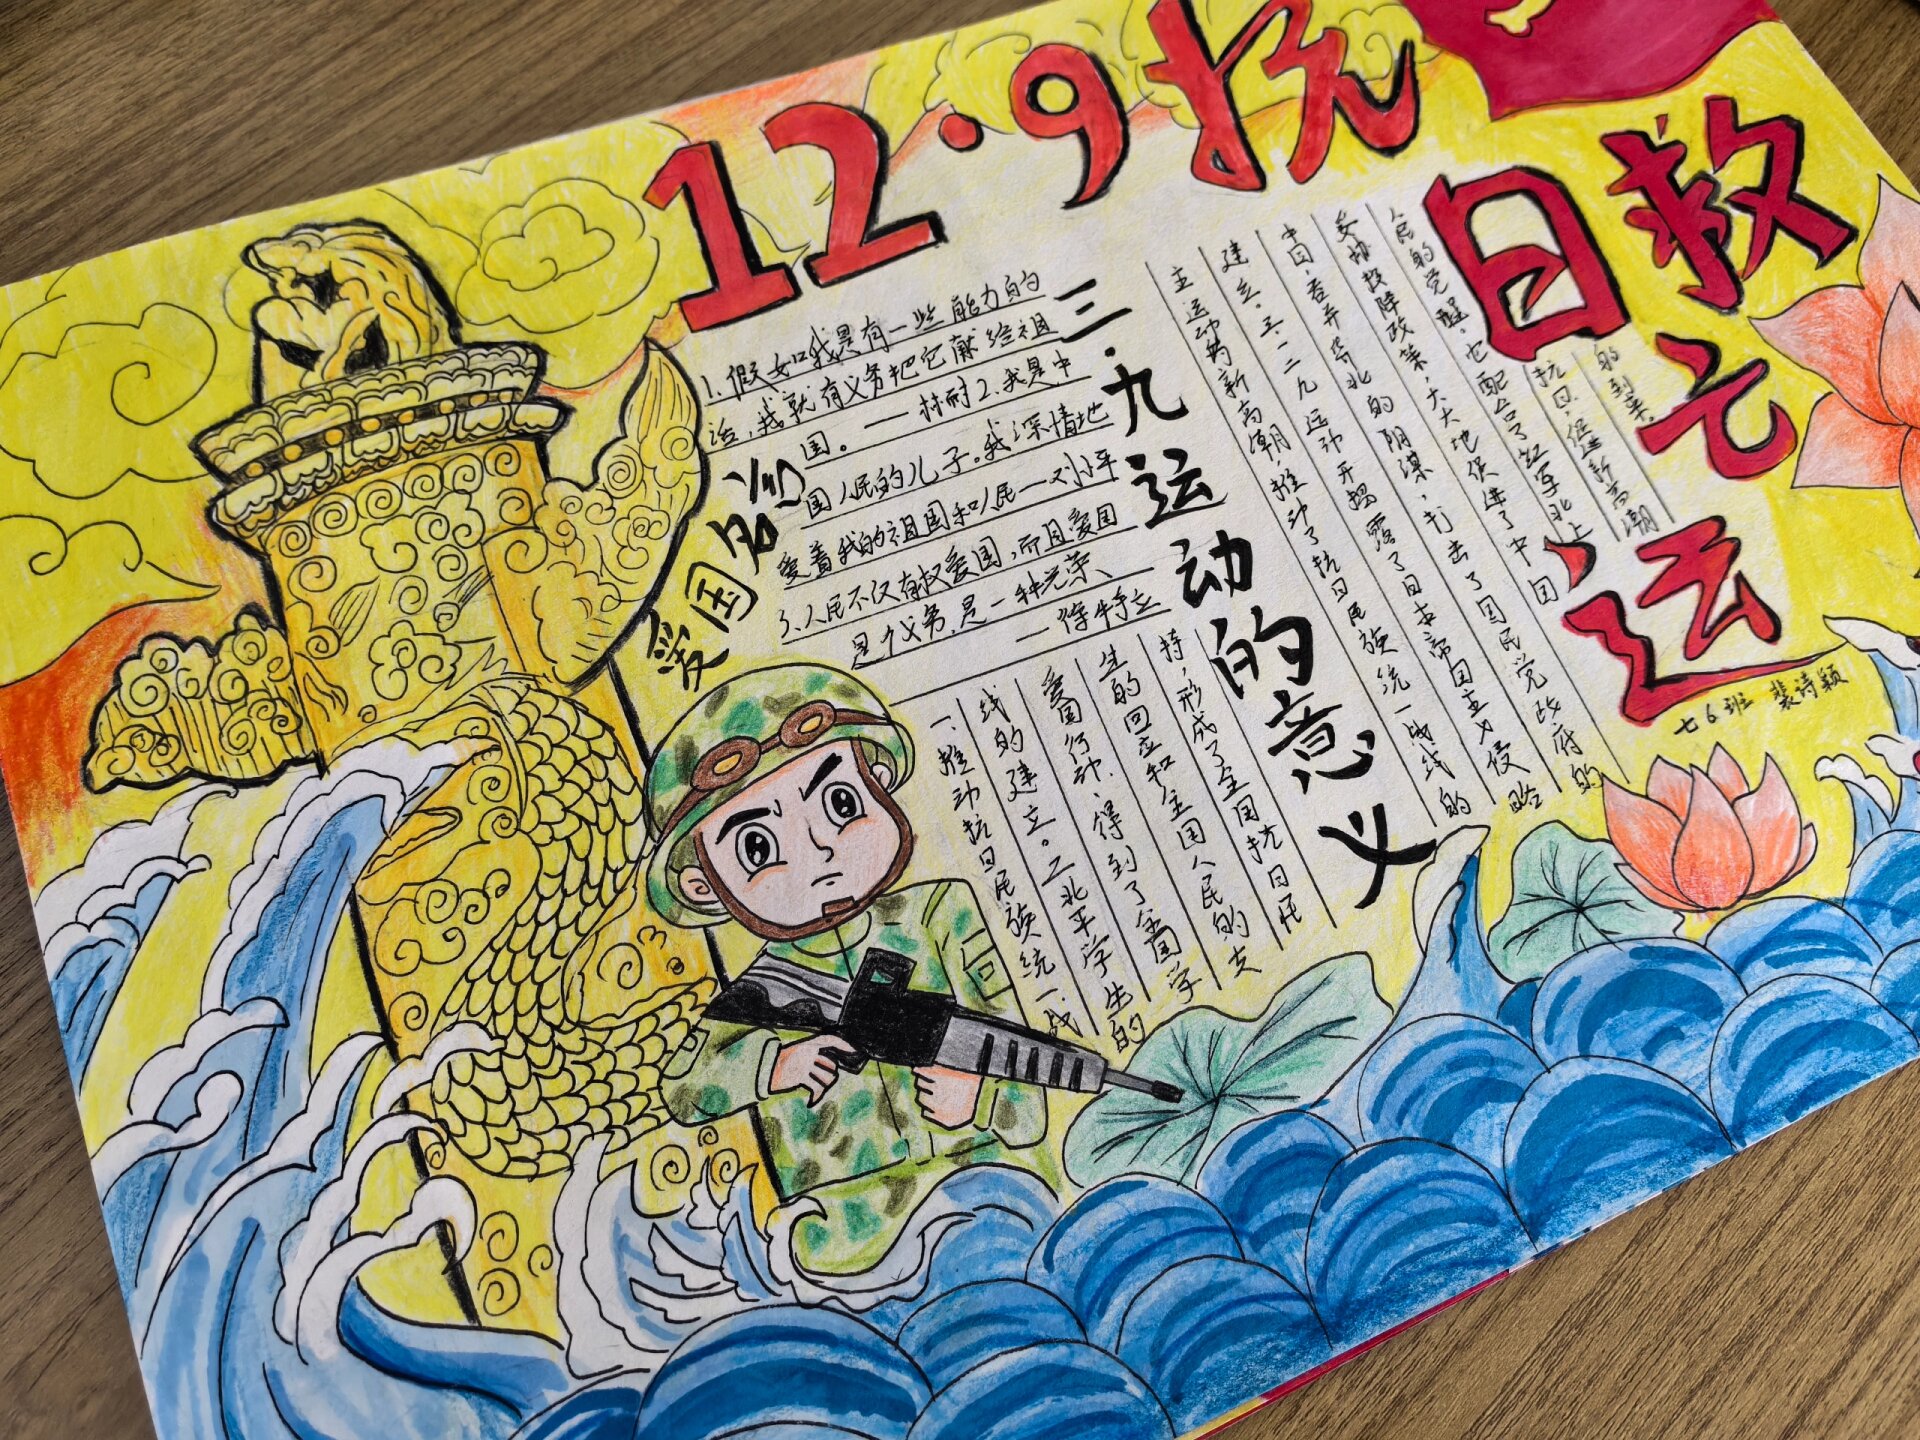 12·9抗
日救亡运
七6班 裴诗颖
爱国名言
1.假如我具有一些能力的
话,我就有义务把它献给祖
国。——林耐2.我是中
国人民的儿子。我深情地
爱着我的祖国和人民—邓小平
3.人民不仅有权爱国,而且爱国
是个义务,是一种光荣
—徐特立
三·九运动的意义
一、推动抗日民族统一战
线的建立。二北平学生的
爱国行动、得到了全国学
生的回应和全国人民的支
持,形成了全国抗日民
主运动的新高潮,推动了抗日民族统一战线的
建立。三、一二九运动开揭露了日本帝国主义侵略
中国,吞并华北的阴谋,打击了国民党政府的
妥协投降政策,大大地促进了中国
人民的觉醒。它配合了红军北上
抗日,促进新高潮
的到来。